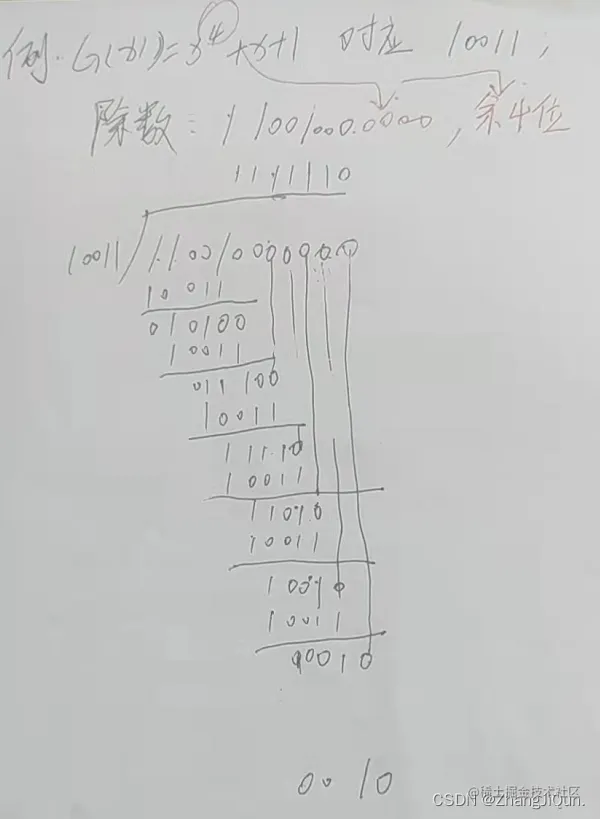 例. G(x)=x⁴+x+1 对应 10011;
除数: 1 1001000.0000, 余4位
1111110
10011 11001000000
10011
010100
10011
011100
10011
11110
10011
11010
10011
10010
10011
00010
0010
@稀土掘金技术社区
CSDN @zhangJiQun.